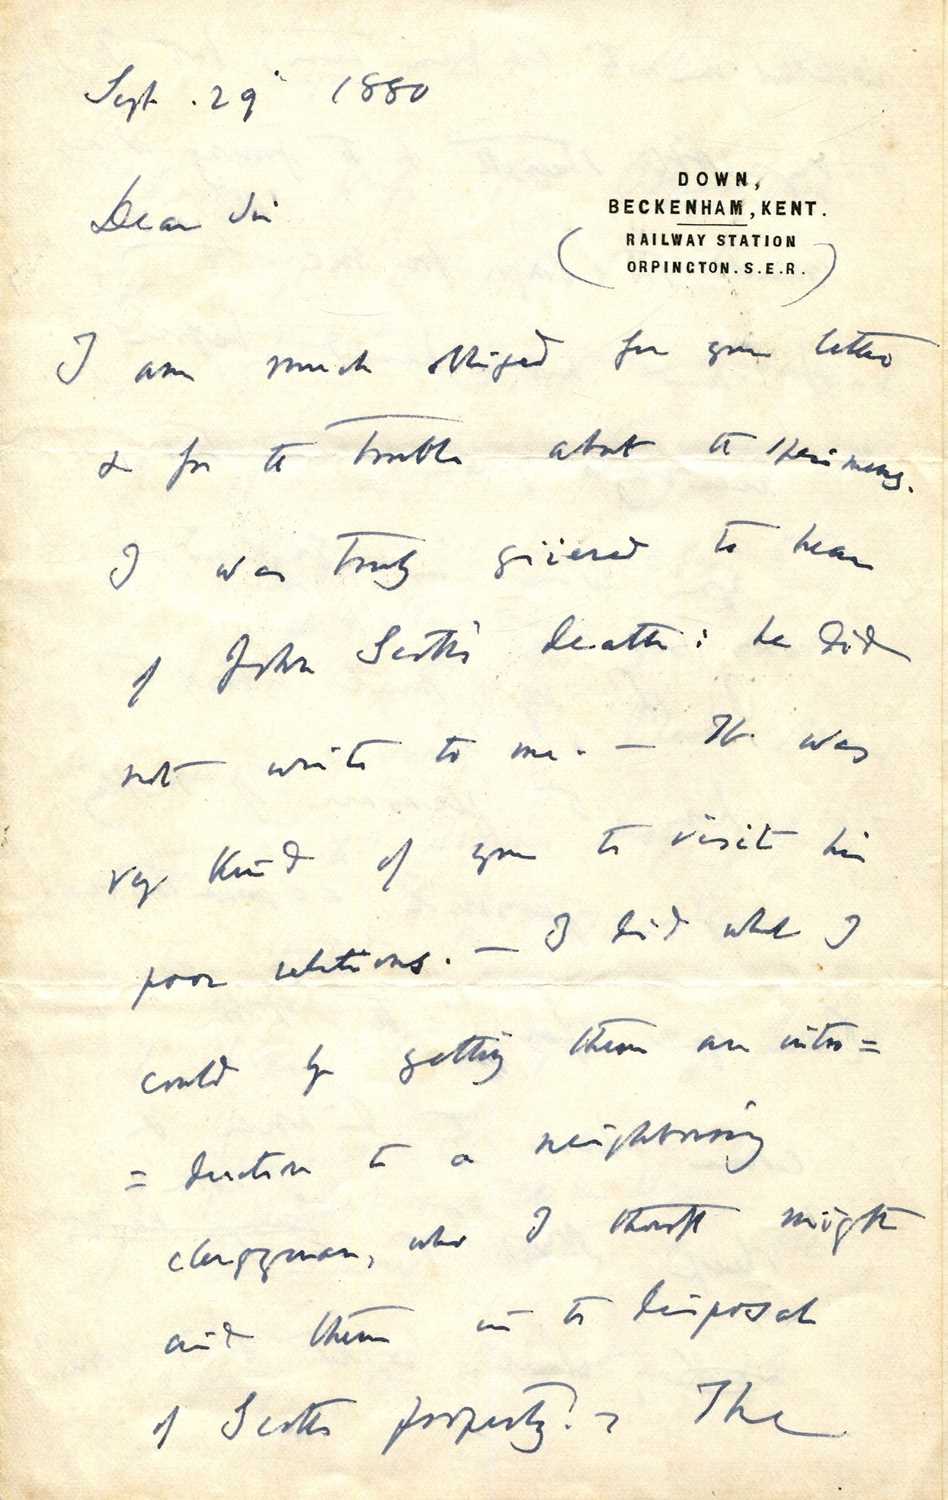 Sept. 29th 1880
DOWN,
BECKENHAM, KENT.
RAILWAY STATION
ORPINGTON. S.E.R.
Dear Sir
I am much obliged for your letter
& for the trouble about the specimens.
I was truly grieved to hear
of John Scott's death: he did
not write to me. — It was
very kind of you to visit his
poor relations. — I did what I
could by getting them an intro=
=duction to a neighbouring
clergyman, who I thought might
aid them in the disposal
of Scott's property. — The